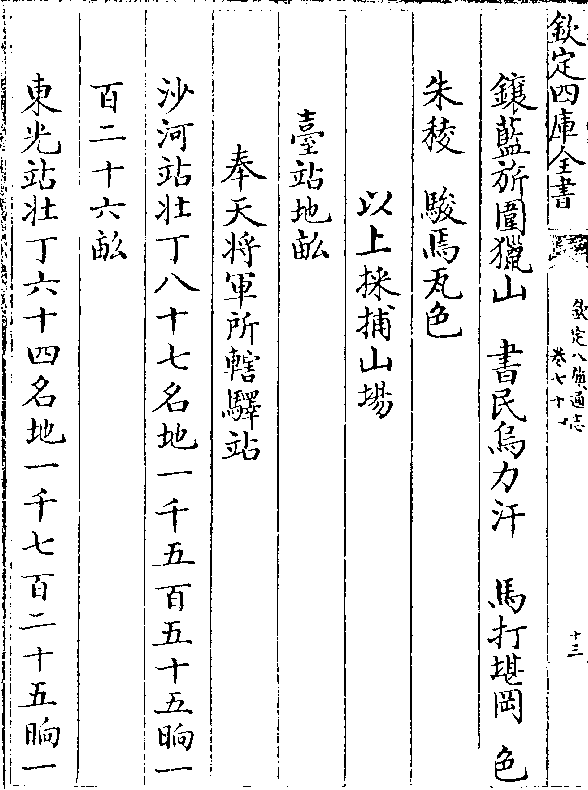 欽定四庫全書
欽定八旗通志
卷七十
十三
鑲藍旂圍獵山　書民烏力汗　馬打堪岡　色
朱稜　駿馬瓦色
以上採捕山場
臺站地畝
奉天將軍所轄驛站
沙河站壯丁八十七名地一千五百五十五晌一
百二十六畝
東光站壯丁六十四名地一千七百二十五晌一